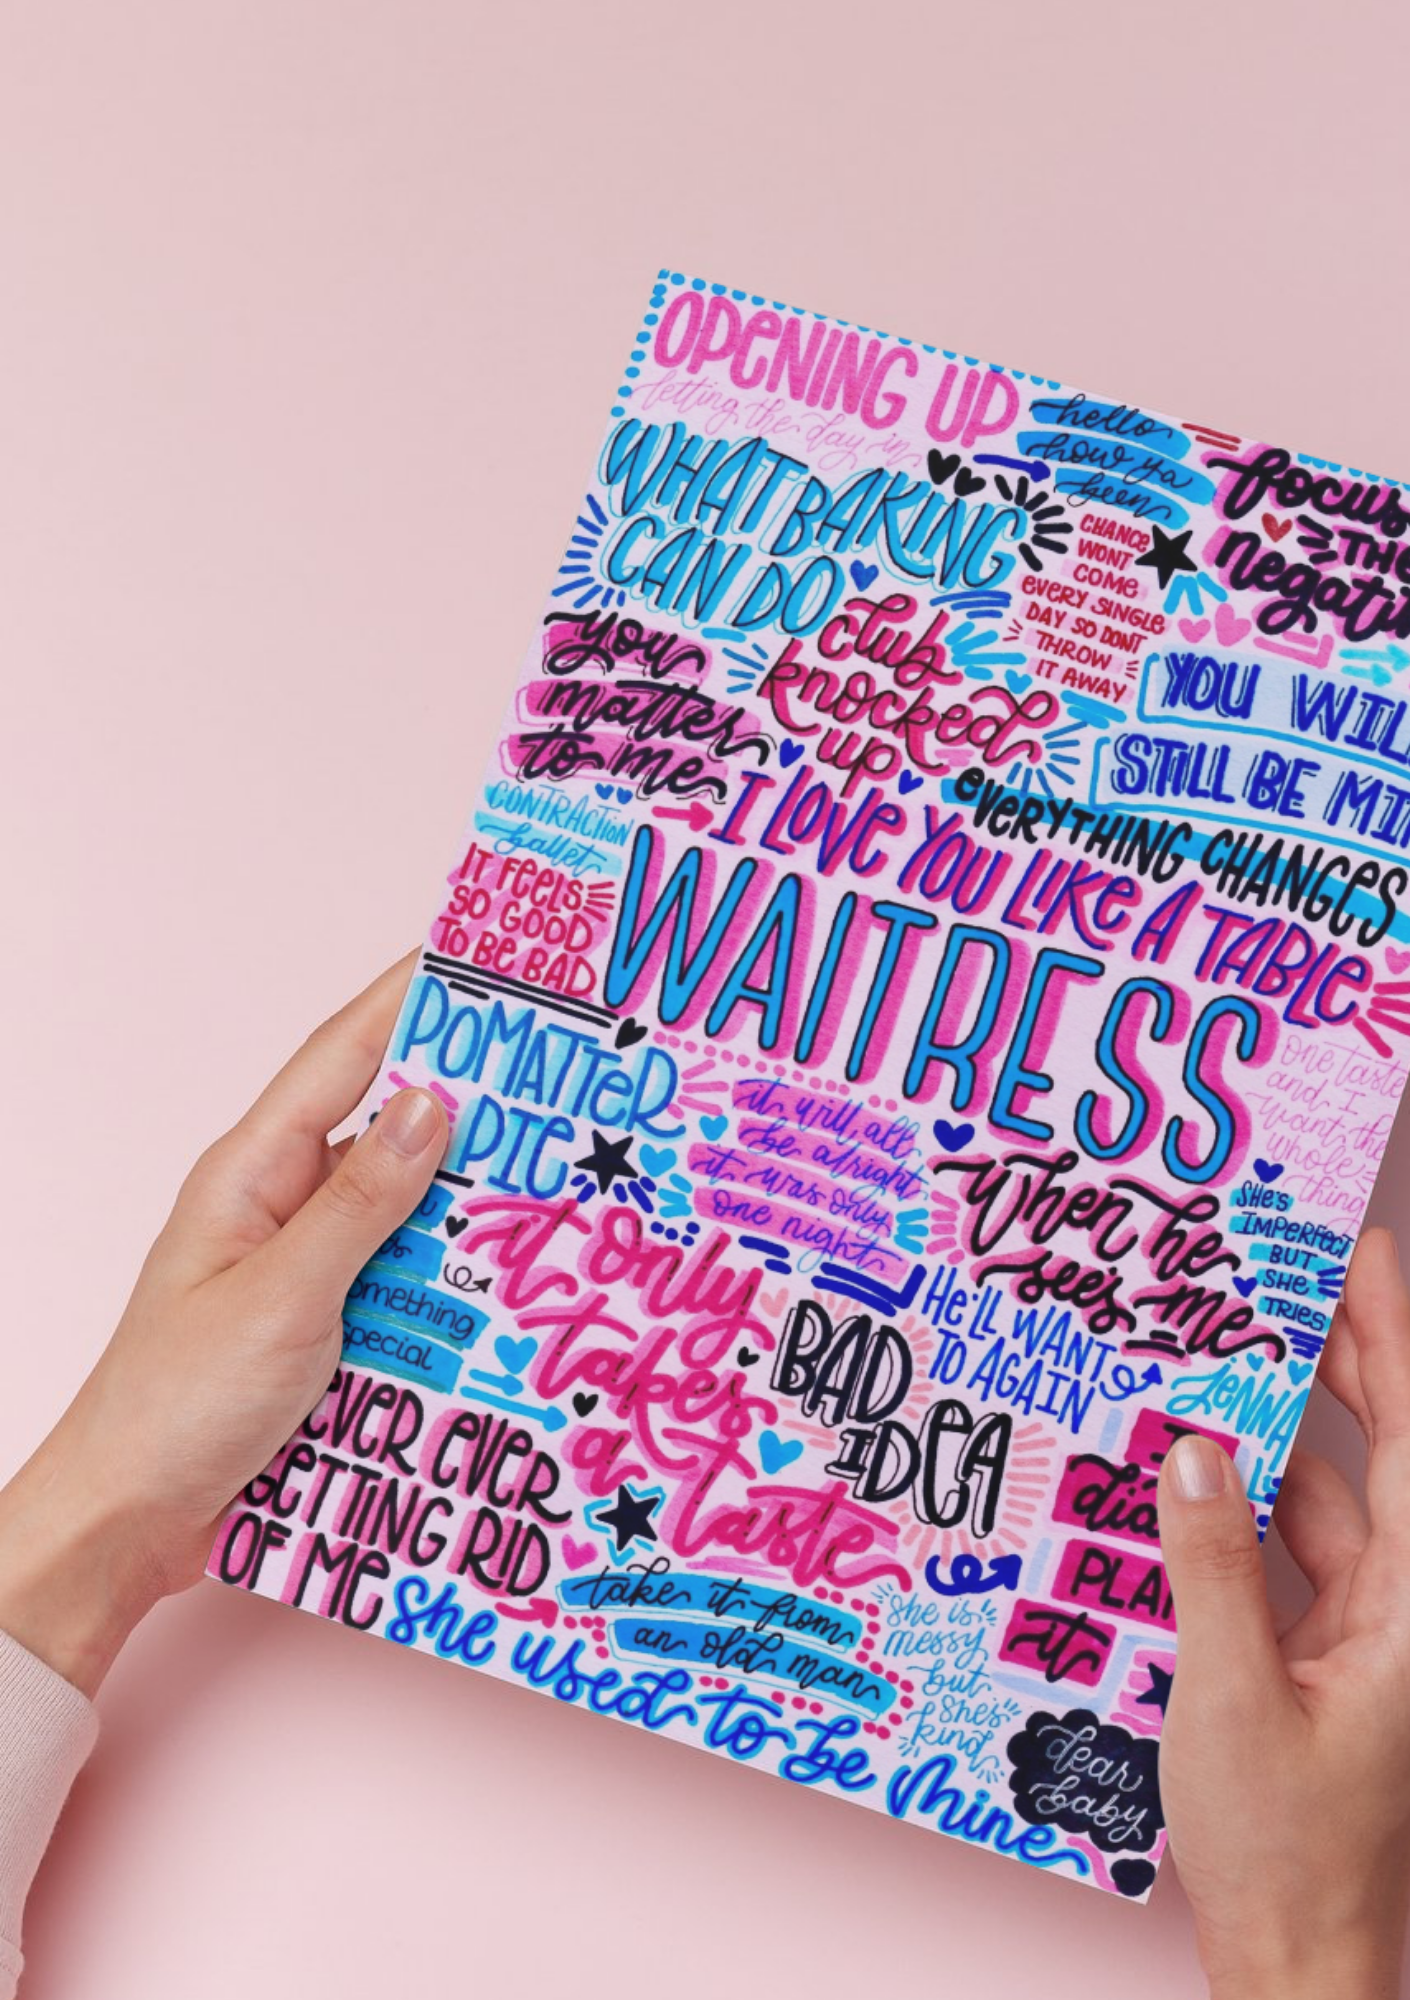 OPENING UP
letting the day in
hello
how ya
been
focus
THE
WHAT BAKING
CAN DO
CHANCE
WONT
COME
EVERY SINGLE
DAY SO DONT
THROW
IT AWAY
you
matter
to me
club
knocked
up
YOU WIL
STILL BE MI
EVERYTHING CHANGES
CONTRACTION
ballet
I LOVE YOU LIKE A TABLE
IT FEELS
SO GOOD
TO BE BAD
WAITRESS
POMATTER
PIE
it will all
be alright
it was only
one night
one taste
and I
want the
whole
thing
when he
sees me
SHE'S
IMPERFECT
BUT
SHE
TRIES
omething
special
it only
takes
a taste
BAD
IDEA
HE'LL WANT
TO AGAIN
JENNA
EVER EVER
GETTING RID
OF ME
dia
PLAN
it
take it from
an old man
she is
messy
but
she's
kind
she used to be mine
dear
baby